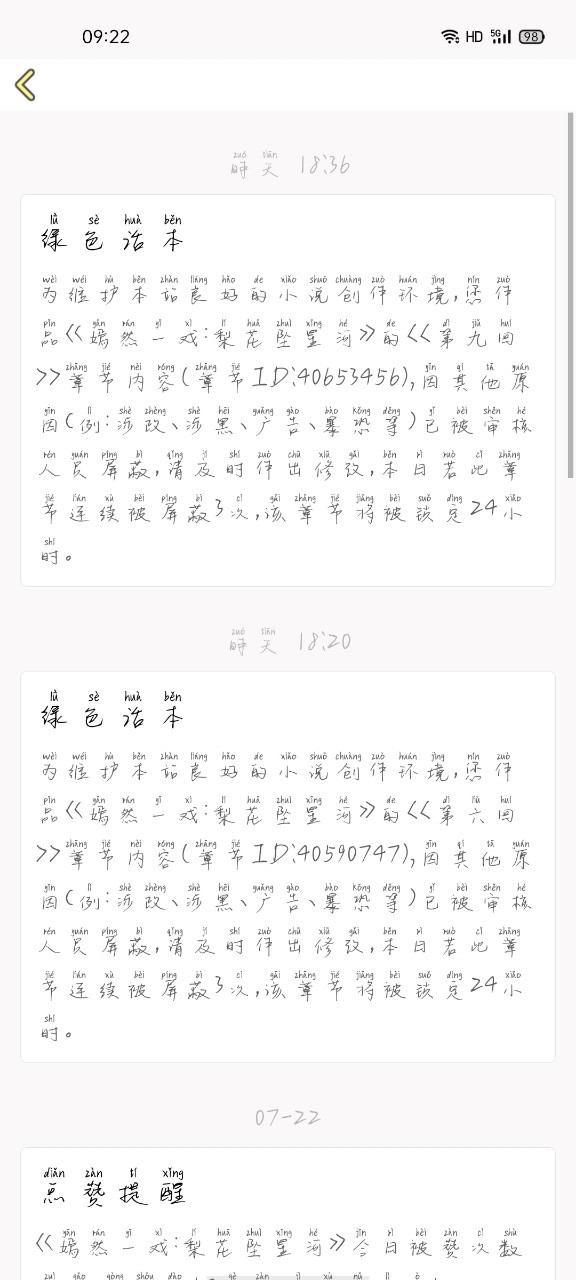 09:22 HD 5G 98
昨天 18:36
绿色话本
为维护本站良好的小说创作环境,您作
品《嫣然一戏:梨花坠星河》的<<第九回
>>章节内容(章节ID:40653456),因其他原
因(例:涉政、涉黑、广告、暴恐等)已被审核
人员屏蔽,请及时作出修改,本日若此章
节连续被屏蔽3次,该章节将被锁定24小
时。
昨天 18:20
绿色话本
为维护本站良好的小说创作环境,您作
品《嫣然一戏:梨花坠星河》的<<第六回
>>章节内容(章节ID:40590747),因其他原
因(例:涉政、涉黑、广告、暴恐等)已被审核
人员屏蔽,请及时作出修改,本日若此章
节连续被屏蔽3次,该章节将被锁定24小
时。
07-22
点赞提醒
《嫣然一戏:梨花坠星河》今日被赞次数